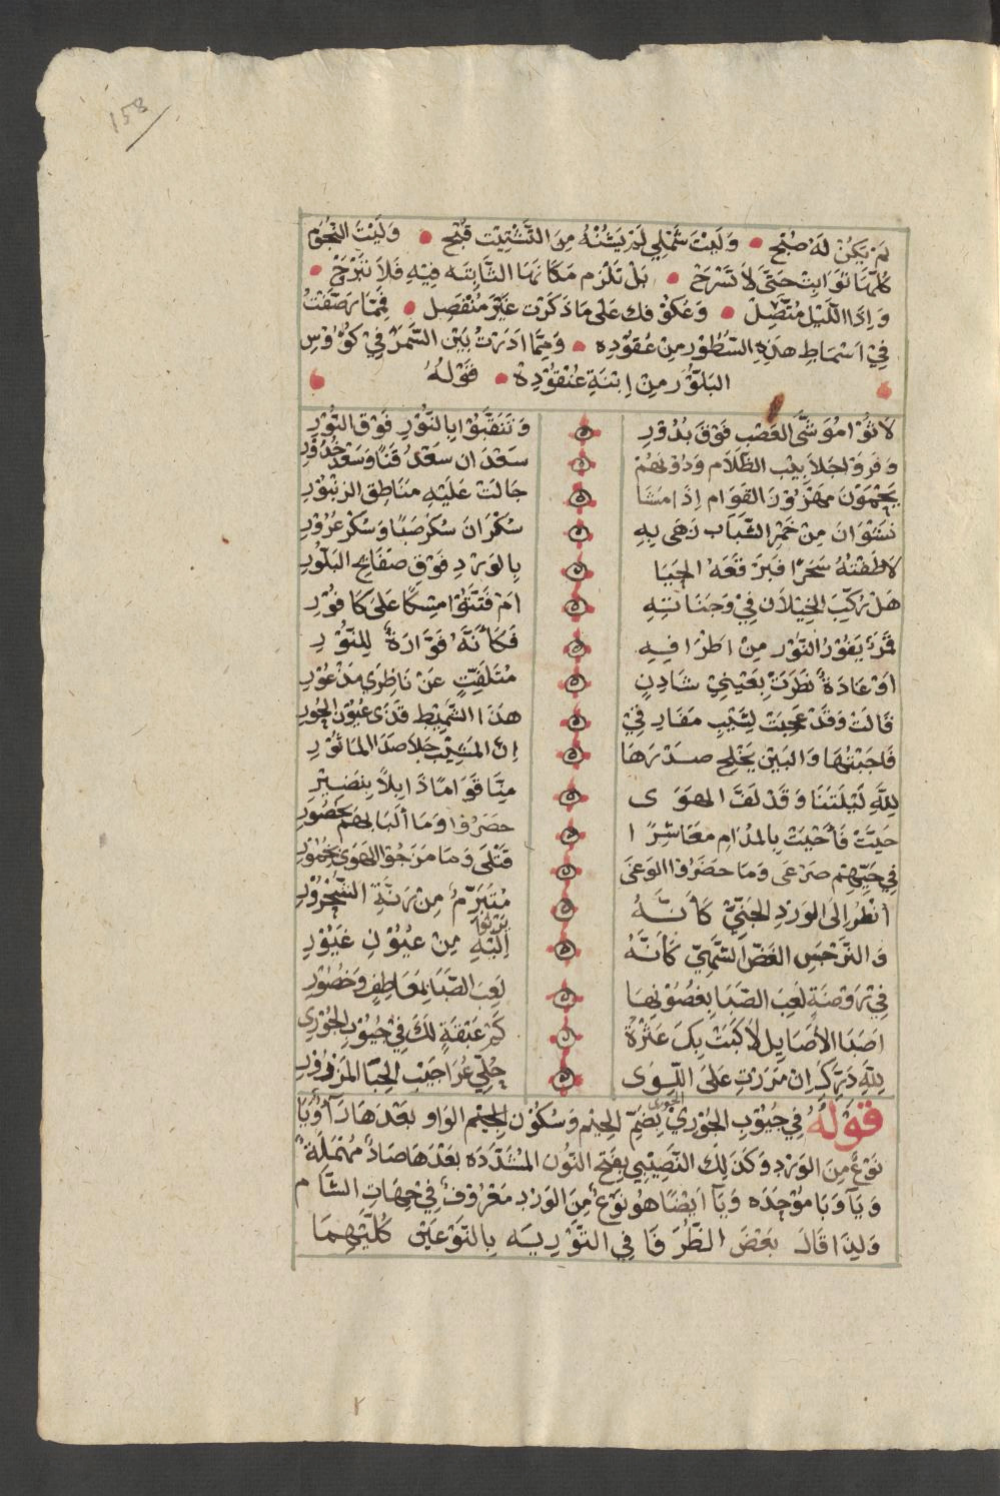 158
لَمْ يَكُنْ لَهُ صُبْحٌ • وَلَيْتَ شَمْلِي لَمْ يَشُنْهُ مِنَ التَّشْتِيْتِ قُبْحٌ • وَلَيْتَ النُّجُوْم
كُلَّهَا ثَوَابِتْ حَتَّى لَا تَسْرَحْ • بَلْ تَلْزَم مَكَانَهَا الثَّابِتَه فِيْهِ فَلَا تَبْرَحْ •
وَاِذَا اللَّيْل مُتَّصِلْ • وَعُكُوْفك عَلَى مَا ذَكَرْت غَيْرَ مُنْفَصِل • فَمِمَّا رَصَّفْتُ
فِيْ اَسْمَاطِ هَذِهِ السُّطُوْر مِنْ عُقُوْدِه • وَمِمَّا اَدَرْتُ بَيْن السَّمَرْ فِي كُؤُوْسِ
البَلَّوْرِ مِنْ اِبْنَةِ عُنْقُوْدِهْ • قَوْلهُ
لَاثُوْا مُوَشَّى العَصْبِ فَوْقَ بُدُوْرِ ۞ وَتَنَقَّبُوْا بِالنَّوْرِ فَوْقَ النُّوْرِ
وَفَرَوْا جَلَابِيْب الظَّلَام وَدُوْنهُمْ ۞ سَعْدَانِ سَعْدُ قَنًا وَسَعْدُ خُدُوْرِ
يَحْمُوْنَ مَهْزُوْزَ القَوَام اِذَا مَشَا ۞ جَالَتْ عَلَيْهِ مَنَاطِق الزُّنْبُوْرِ
نَشْوَانَ مِنْ خَمْرِ الشَّبَاب زَهَى بِهِ ۞ سُكْرَانَ سُكْرُ صَبًا وَسُكْرُ غُرُوْرِ
لَاطَفْتُهُ سَحَرًا فَبَرْقَعَهُ الحَيَا ۞ بِالوَرْدِ فَوْق صَفَائِحِ البَلَّوْرِ
هَلْ رُكِّبَ الخِيْلَان فِيْ وَجَنَاتِهِ ۞ اَمْ فَتَّتُوْا مِسْكًا عَلَى كَافُوْرِ
قَمَرٌ يَفُوْرُ النُّوْر مِنْ اَطْرَافِهِ ۞ فَكَأَنَّهُ فَوَّارَةٌ لِلنُّوْرِ
اَوْ غَادَةٌ نَظَرَتْ بِعَيْنَيْ شَادِنٍ ۞ مُتَلَفِّتٍ عَنْ نَاظِرَي مَذْعُوْرِ
قَالَتْ وَقَدْ عَجِبَتْ لِشَيْبِ مَفَارِقِيْ ۞ هَذَا الشَّمِيْط قَذَى عُيُوْن الحُوْرِ
فَاَجَبْتُهَا وَالبَيْن يَخْلِج صَدْرَهَا ۞ اِنَّ المَشِيْب جَلَا صَدَا المَاثُوْرِ
لِلّٰهِ لَيْلَتَنَا وَقَدْ لَفَّ الهَوَى ۞ مِنَّا قَوَامًا ذَابِلًا بِنَضِيْرِ
حَيَّتْ فَأَحْيَتْ بِالمُدَامِ مَعَاشِرًا ۞ حَضَرُوا وَمَا أَلْبَابهمْ بحُضُوْرِ
فِي حَيِّهِم صَرْعَى وَمَا حَضَرُوْا الوَغَى ۞ قَتْلَى وَمَا مَزَجُوْا الهَوَى بِخُمُوْرِ
اُنْظُرْ اِلَى الوَرْدِ الجَنِيِّ كَأَنَّهُ ۞ مُتَبَرِّمٌ مِنْ رَنَّةِ الشُّحْرُوْرِ
وَالنَّرْجَسِ الغَضّ الشَّهِيّ كَأَنَّهُ ۞ مِنْ عُيُوْنِ غَيُوْرِ
فِيْ رَوْضَةٍ لَعِبَ الصَّبَا بِغُصُوْنِهَا ۞ لَعِبَ الصَّبَا بِمَعَاطِفٍ وَخُصُوْرِ
اَصَبَا الأَصَايِل لَا كَبَتْ بِكَ عَثْرَةٌ ۞ كَمْ عَبْقَةٍ لَكَ فِيْ جُيُوْبِ الجُوْرِي
لِلّٰهِ دَرّكِ اِنْ مَرَرْتِ عَلَى اللِّوَى ۞ حُلِّي عُرَا جَيْب الحَيَا المَزْرُوْرِ
قوْلُهُ فِي جُيُوْبِ الجُوْرِيْ الجُوْرِي بِضَمِّ الجِيْم وَسُكُوْن الجِيْم الوَاو بَعْدَهَا رَآءٌ وَيَا
نَوْعٌ مِنَ الوَرْدِ وَكَذَلِك النَّصِيْبِي بِفَتْحِ النُّوْن المُشَدَّدَه بَعْدَهَا صَادٌ مُهْمَلَهْ
وَيَا وَبَا مُوَحَّدَه وَيَآ اَيْضًا هُو نَوْعٌ مِنَ الوَرْدِ مَعْرُوْفٌ فِي جِهَاتِ الشَّام
وَلِذَا قَالَ بَعْضُ الظُّرَفَا فِي التَّوْرِيَه بِالنَّوْعَيْن كُلَّيْهِمَا